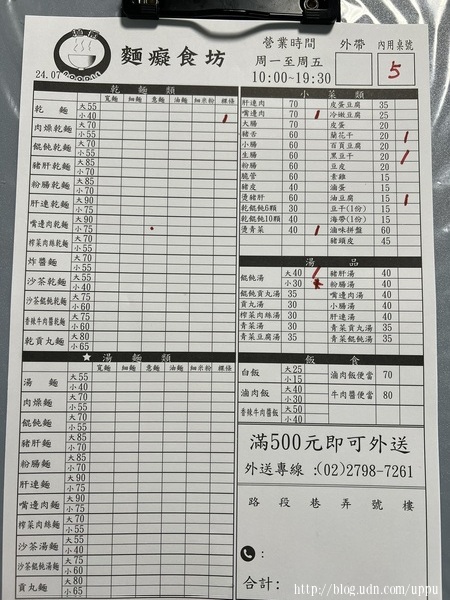 麵癡食坊
24.07
營業時間
周一至周五
10:00~19:30
外帶
內用桌號
5
乾麵類
寬麵 細麵 意麵 油麵 細米粉 粿條
乾麵 大55 小40
肉燥乾麵 大70 小55
餛飩乾麵 大85 小70
豬肝乾麵 大85 小70
粉腸乾麵 大85 小70
肝連乾麵 大90 小75
嘴邊肉乾麵 大90 小75
榨菜肉絲乾麵 大70 小55
炸醬麵 大70 小55
沙茶乾麵 大75 小60
沙茶餛飩乾麵
香辣牛肉醬乾麵
乾貢丸麵 大80 小65
湯麵類
寬麵 細麵 意麵 油麵 細米粉 粿條
湯麵 大55 小40
肉燥麵 大70 小55
餛飩麵 大85 小70
豬肝麵 大85 小70
粉腸麵 大85 小70
肝連麵 大90 小75
嘴邊肉麵 大90 小75
榨菜肉絲麵 大70 小55
沙茶湯麵 大70 小55
沙茶餛飩湯麵
貢丸麵 大80 小65
小菜類
肝連肉 70 皮蛋豆腐 35
嘴邊肉 70 冷嫩豆腐 25
大腸 70 皮蛋 20
豬舌 60 蘭花干 20
小腸 60 百頁豆腐 20
生腸 60 黑豆干 20
粉腸 60 豆皮 20
脆管 60 素雞 20
豬皮 40 滷蛋 15
燙豬肝 60 油豆腐 15
乾餛飩6顆 30 豆干(1份) 15
乾餛飩10顆 40 海帶(1份) 15
燙青菜 40 滷味拼盤 60
豬頭皮 45
湯品
餛飩湯 大40 小30 豬肝湯 40
粉腸湯 40
餛飩貢丸湯 35 嘴邊肉湯 40
貢丸湯 30 小腸湯 40
榨菜肉絲湯 35 肝連湯 40
青菜湯 35 青菜貢丸湯 35
青菜豆腐湯 35 青菜餛飩湯 35
飯食
白飯 大25 小15 滷肉飯便當 70
滷肉飯 大40 小30 牛肉醬便當 80
香辣牛肉醬飯 大50 小40
滿500元即可外送
外送專線:(02)2798-7261
路 段 巷 弄 號 樓
:
合計:
http://blog.udn.com/uppu